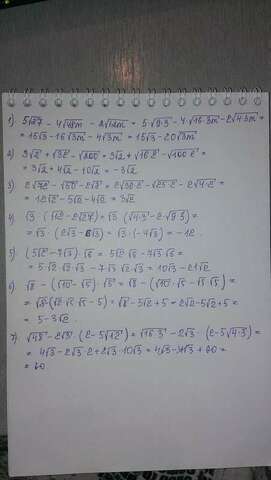 1) 5√27 - 4√48m - 2√12m = 5·√9·3 - 4·√16·3m - 2√4·3m =
= 15√3 - 16√3m - 4√3m = 15√3 - 20√3m
2) 3√2 + √32 - √200 = 3√2 + √16·2 - √100·2 =
= 3√2 + 4√2 - 10√2 = -3√2
3) 2√72 - √50 - 2√8 = 2√36·2 - √25·2 - 2√4·2 =
= 12√2 - 5√2 - 4√2 = 3√2
4) √3 · (√12 - 2√27) = √3 · (√4·3 - 2·√9·3) =
= √3 · (2√3 - 6√3) = √3 · (-4√3) = -12
5) (5√2 - 7√3)·√6 = 5√2·√6 - 7√3·√6 =
= 5·√2·√2·√3 - 7·√3·√2·√3 = 10√3 - 21√2
6) √8 - (√10 - √5)·√5 = √8 - (√10·√5 - √5·√5) =
= √8 - (√2·√5·√5 - 5) = √8 - 5√2 + 5 = 2√2 - 5√2 + 5 =
= 5 - 3√2
7) √48 - 2√3 · (2 - 5√12) = √16·3 - 2√3 · (2 - 5√4·3) =
= 4√3 - 2√3·2 + 2√3·10√3 = 4√3 - 4√3 + 60 =
= 60